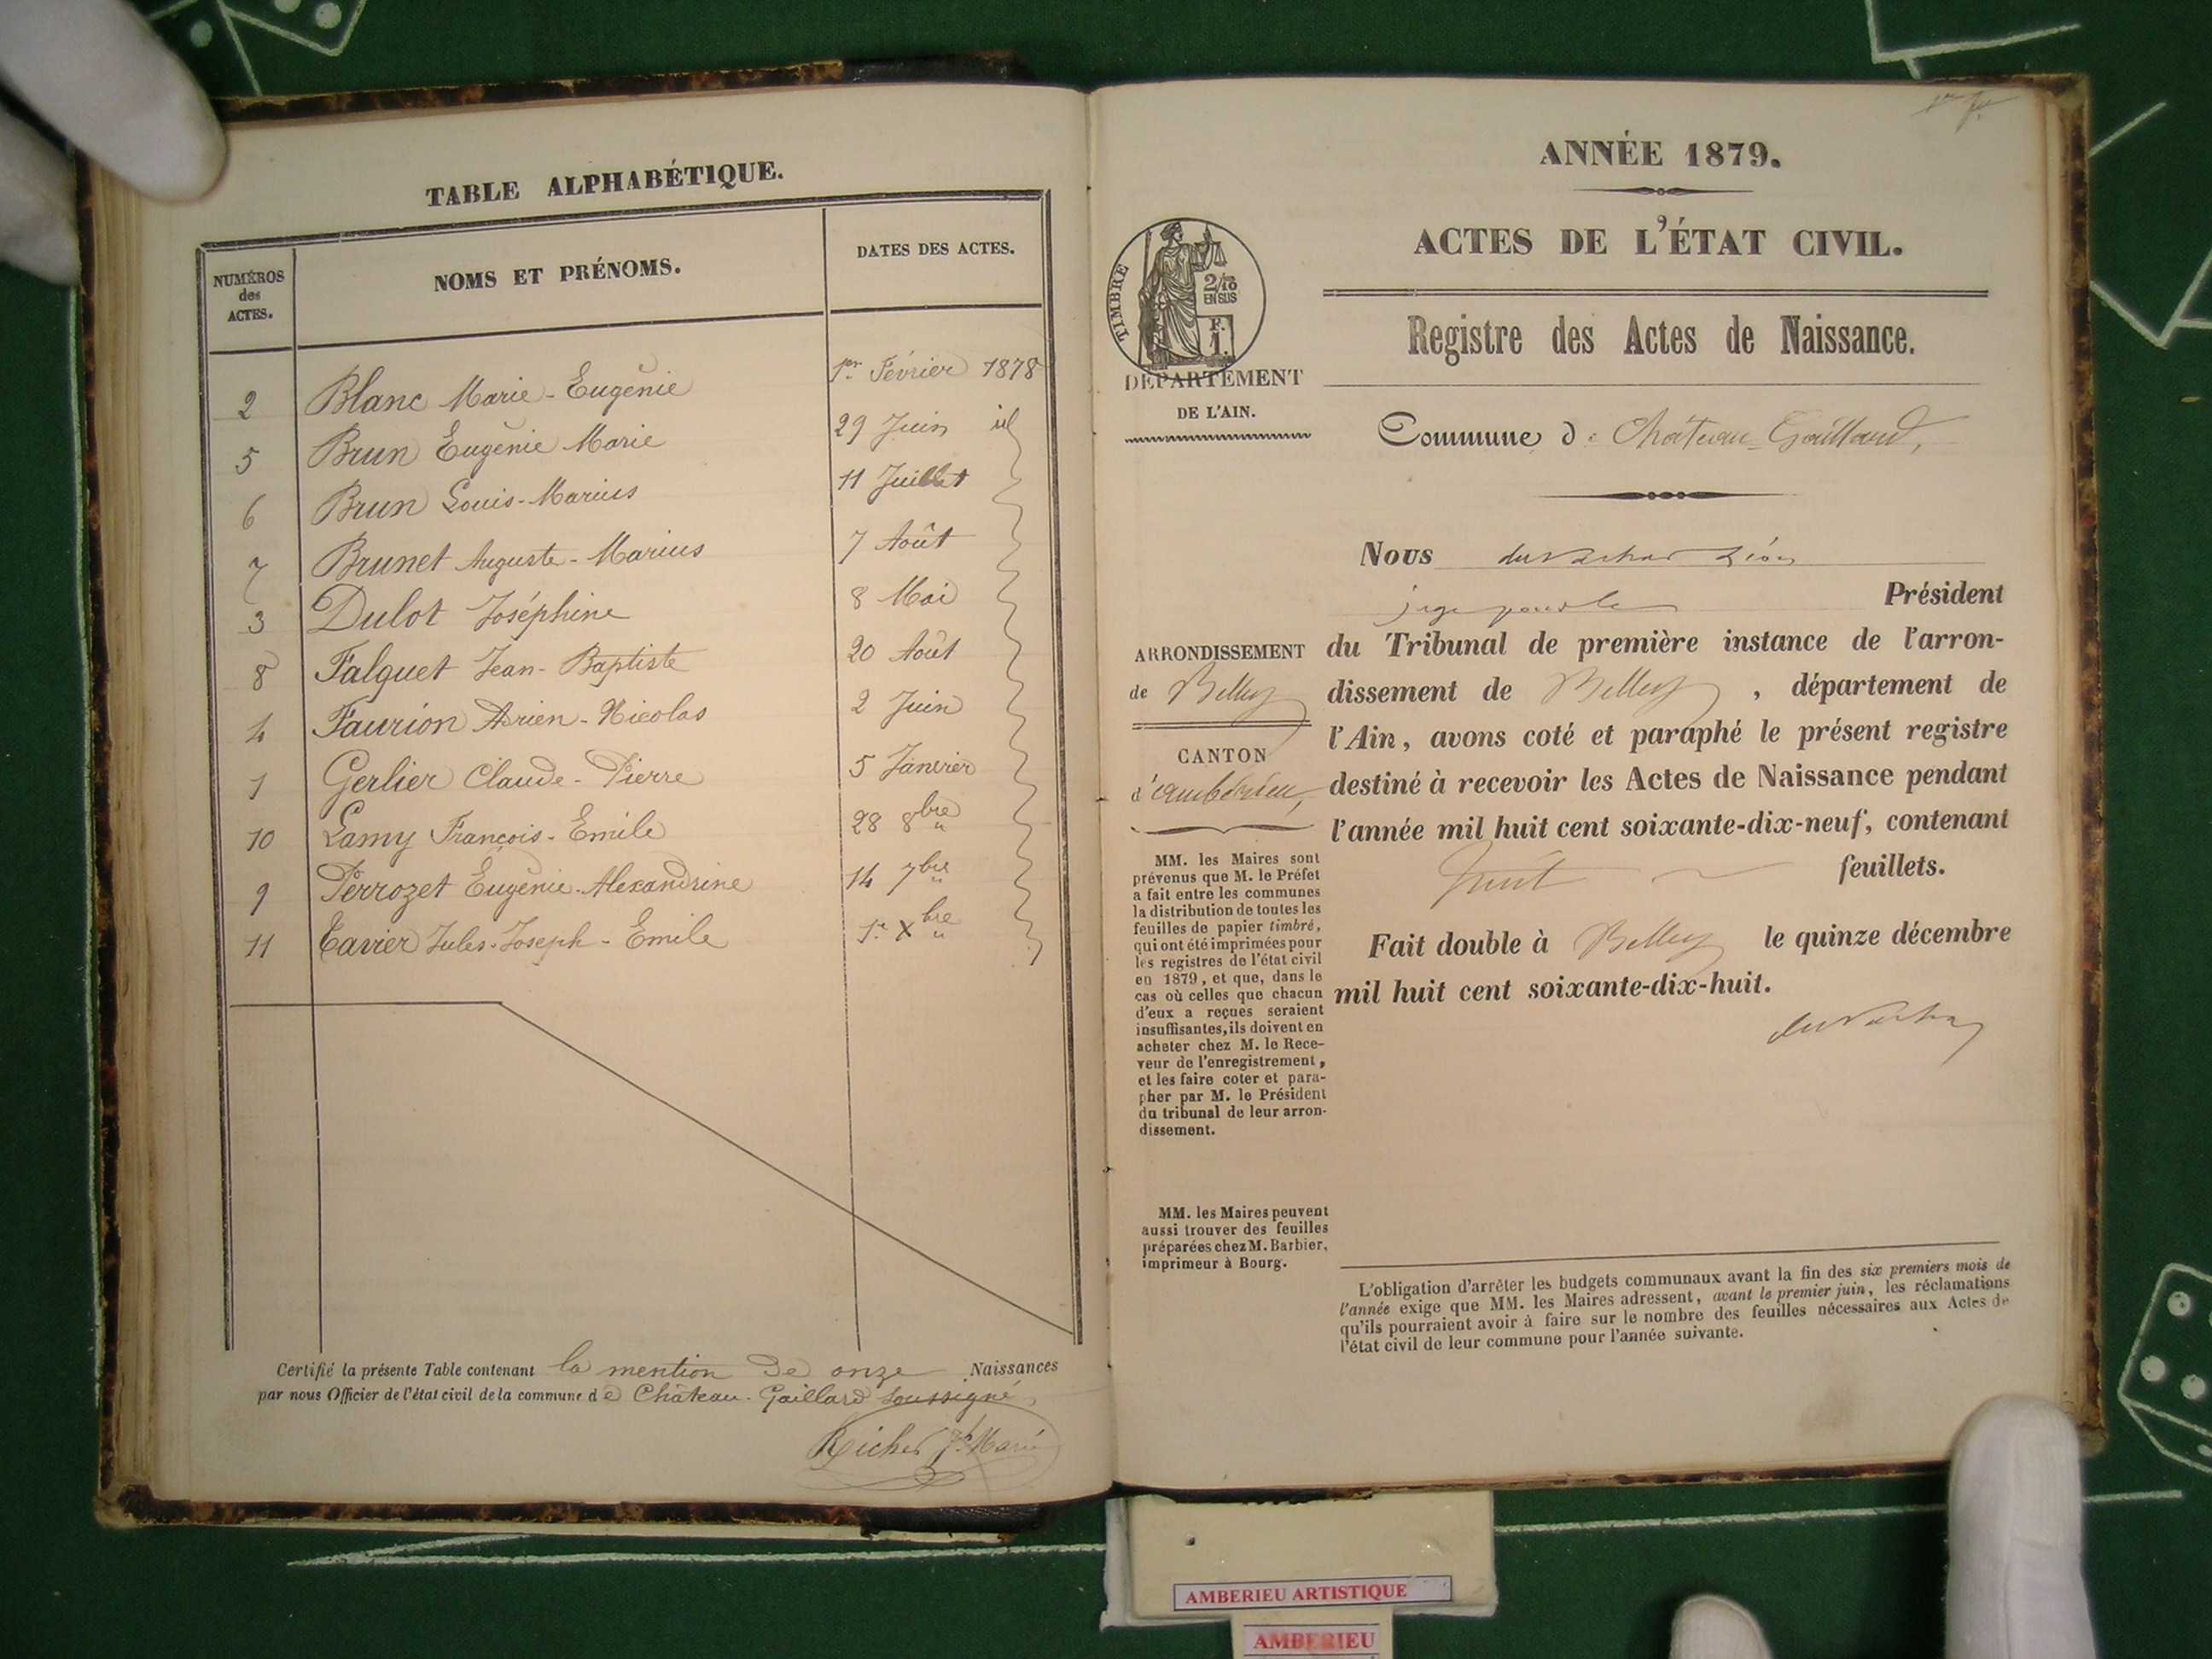 TABLE ALPHABÉTIQUE.
NUMÉROS des ACTES.
NOMS ET PRÉNOMS.
DATES DES ACTES.
2 Blanc Marie-Eugènie 1er Février 1878
5 Brun Eugènie Marie 29 Juin id
6 Brun Louis-Marius 11 Juillet
7 Brunet Auguste-Marius 7 Août
3 Dulot Joséphine 8 Mai
8 Falquet Jean-Baptiste 20 Août
4 Faurion Adrien-Nicolas 2 Juin
1 Gerlier Claude-Pierre 5 Janvier
10 Lamy François-Emile 28 8bre
9 Perrozet Eugènie-Alexandrine 14 7bre
11 Tavier Jules-Joseph-Emile 1er Xbre
Certifié la présente Table contenant la mention de onze Naissances
par nous Officier de l'état civil de la commune de Château-Gaillard soussigné,
ANNÉE 1879.
ACTES DE L'ÉTAT CIVIL.
Registre des Actes de Naissance.
TIMBRE
2/10
EN SUS
F.
1.
DÉPARTEMENT
DE L'AIN.
Commune de Château-Gaillard,
Nous
Président
du Tribunal de première instance de l'arron-
dissement de Belley, département de
l'Ain, avons coté et paraphé le présent registre
destiné à recevoir les Actes de Naissance pendant
l'année mil huit cent soixante-dix-neuf, contenant
huit feuillets.
Fait double à Belley le quinze décembre
mil huit cent soixante-dix-huit.
ARRONDISSEMENT
de Belley
CANTON
d'ambérieu,
MM. les Maires sont
prévenus que M. le Préfet
a fait entre les communes
la distribution de toutes les
feuilles de papier timbré,
qui ont été imprimées pour
les registres de l'état civil
en 1879, et que, dans le
cas où celles que chacun
d'eux a reçues seraient
insuffisantes, ils doivent en
acheter chez M. le Rece-
veur de l'enregistrement,
et les faire coter et para-
pher par M. le Président
du tribunal de leur arron-
dissement.
MM. les Maires peuvent
aussi trouver des feuilles
préparées chez M. Barbier,
imprimeur à Bourg.
L'obligation d'arrêter les budgets communaux avant la fin des six premiers mois de
l'année exige que MM. les Maires adressent, avant le premier juin, les réclamations
qu'ils pourraient avoir à faire sur le nombre des feuilles nécessaires aux Actes de
l'état civil de leur commune pour l'année suivante.
AMBERIEU ARTISTIQUE
AMBERIEU